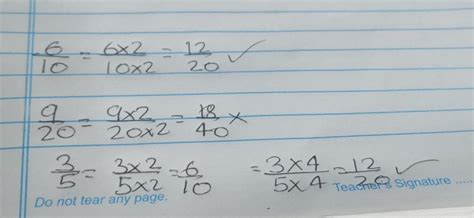 6/10 = 6×2/10×2 = 12/20 ✓
9/20 = 9×2/20×2 = 18/40 ×
3/5 = 3×2/5×2 = 6/10 = 3×4/5×4 = 12/20 ✓
Do not tear any page. Teacher's Signature .....